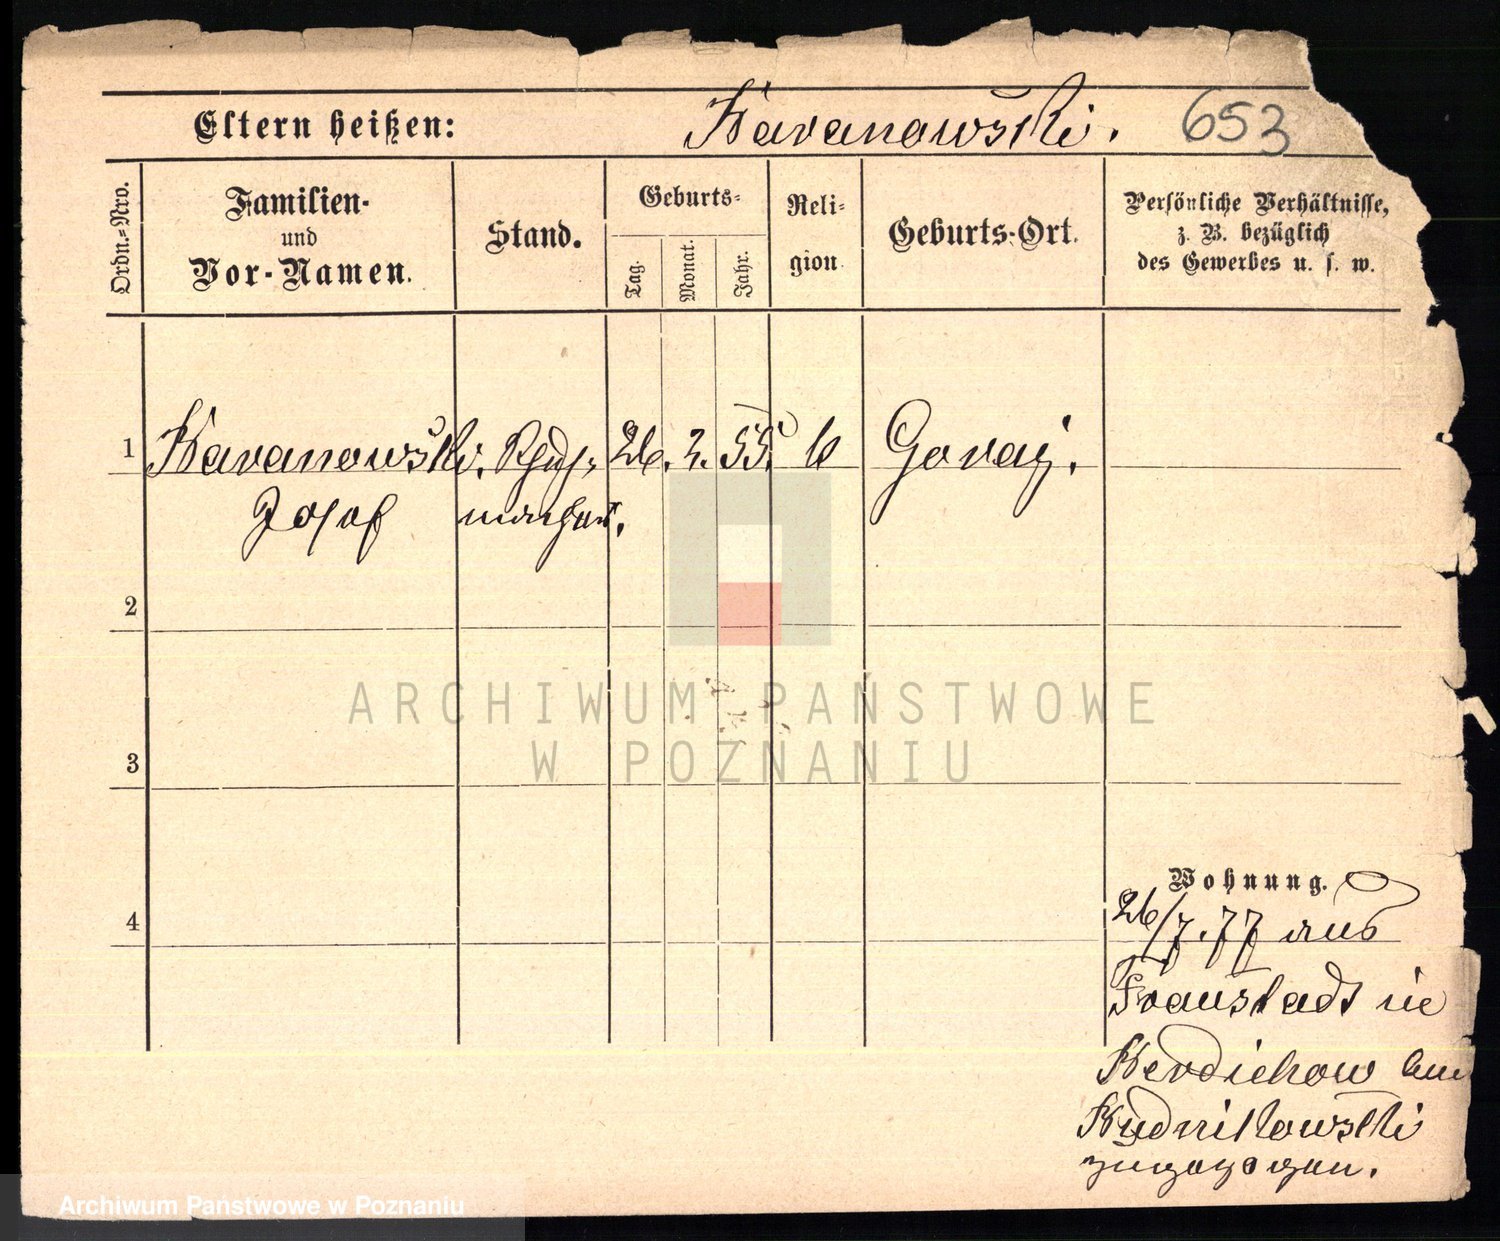 Eltern heißen: Karanowski. 653
Ordn.-Nro.
Familien-
und
Vor-Namen.
Stand.
Geburts-
Tag.
Monat.
Jahr.
Reli-
gion
Geburts-Ort.
Persönliche Verhältnisse,
z. B. bezüglich
des Gewerbes u. s. w.
1 Karanowski. 26. 2. 55. Goray.
Josef macher.
2
ARCHIWUM PAŃSTWOWE
W POZNANIU
3
Wohnung.
4
26/7. 77 aus
Fraustadt in
zugezogen.
Archiwum Panstwowe w Poznaniu